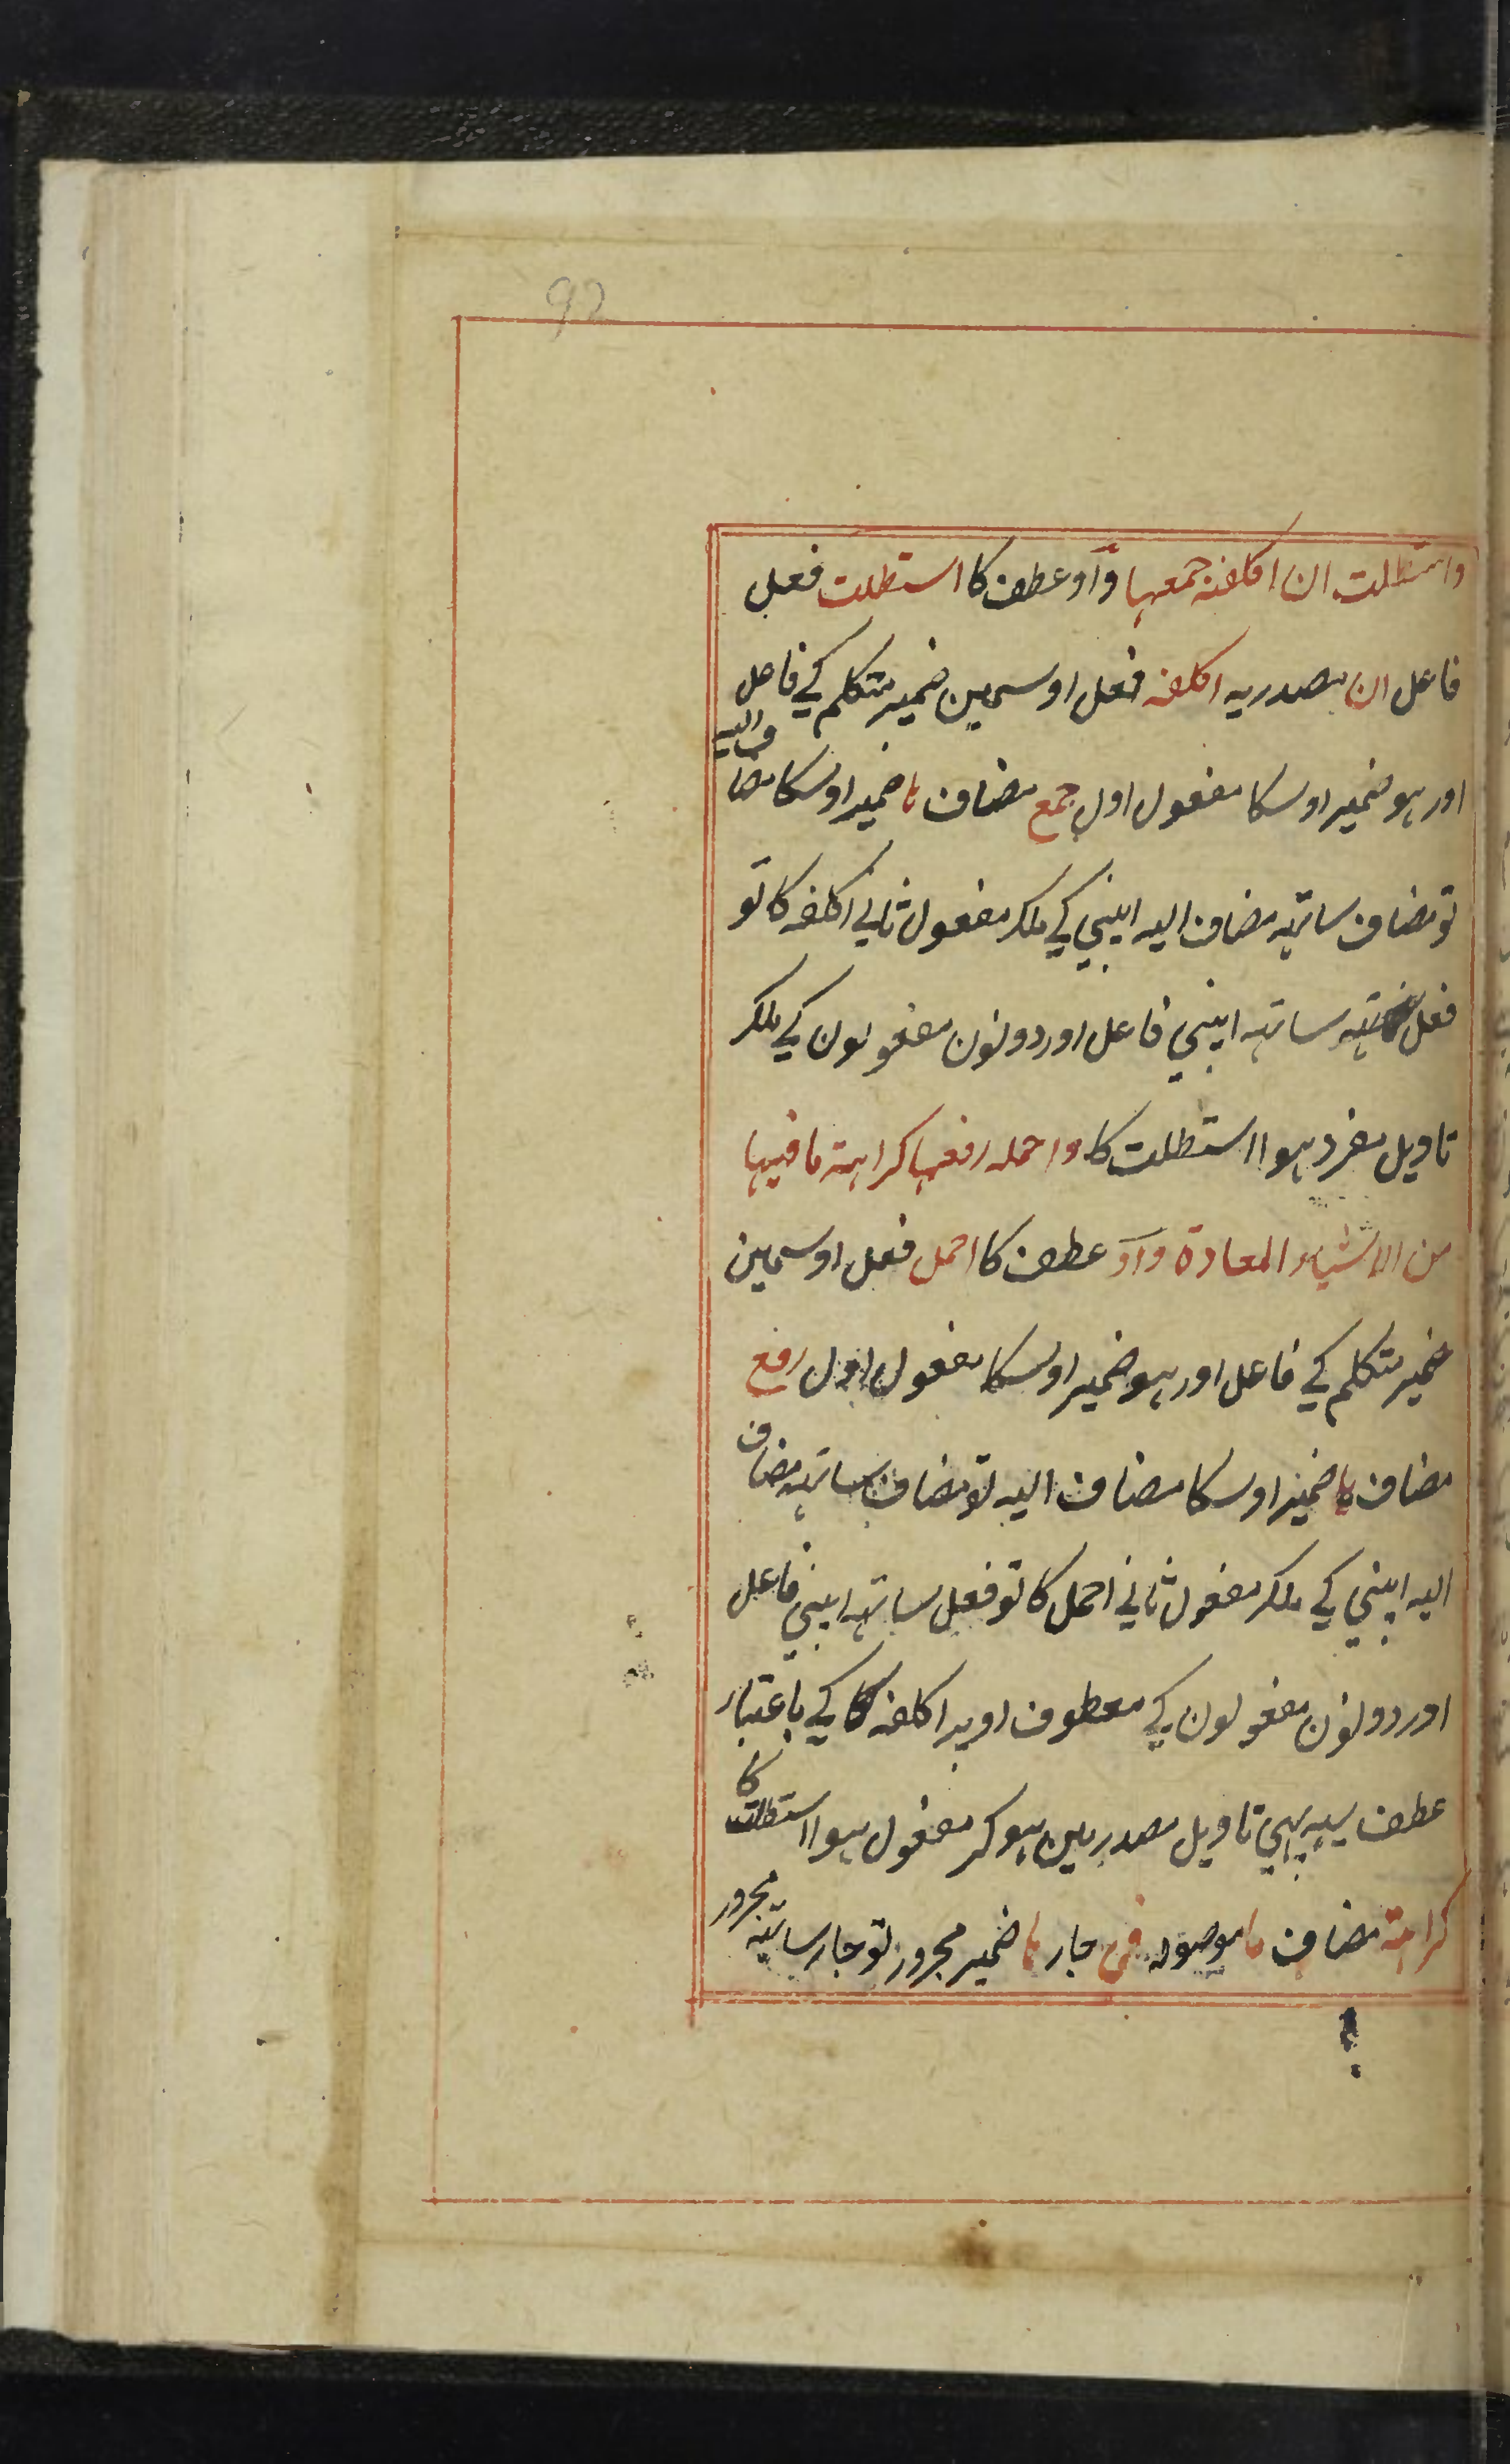 92
واستطلت ان اکلفه جمعہا وآو عطف کا استطلت فعل
فاعل ان مصدریہ اکلفہ فعل اوسمین ضمیر متکلم کے فاعل
اور ہو ضمیر اوسکا مفعول اول جمع مضاف ہا ضمیر اوسکا مضاف الیہ
تو مضاف ساتہہ مضاف الیہ اپنی کے ملکر مفعول ثانے اکلفہ کا تو
فعل ساتہہ اپنی فاعل اور دونون مفعولون کے ملکر
تاویل مفرد ہوا استطلت کا واحملہ رفعہا کراہتہ ما فیہا
من الاشیاء المعادة وآو عطف کا احمل فعل اوسمین
ضمیر متکلم کے فاعل اور ہو ضمیر اوسکا مفعول اول رفع
مضاف ہا ضمیر اوسکا مضاف الیہ تو مضاف ساتہہ مضاف
الیہ اپنی کے ملکر مفعول ثانے احمل کا تو فعل ساتہہ اپنی فاعل
اور دونون مفعولون کے معطوف اوپر اکلفہ کا کے باعتبار
عطف یہہ بہی تاویل مصدر مین ہوکر مفعول ہوا استطلت کا
کراہتہ مضاف ما موصولہ فی جار ہا ضمیر مجرور تو جار ساتہہ مجرور